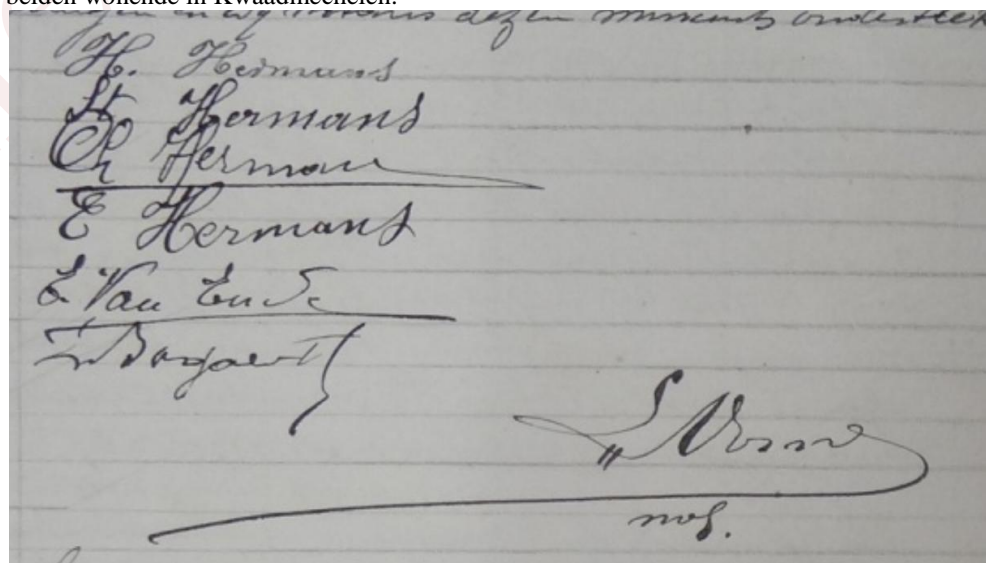 beiden wonende in Kwaadmechelen.
en wij Notaris dezen
H. Hermans
St Hermans
Ch Hermans
E Hermans
E. Van Ende
Bogaerts
not.